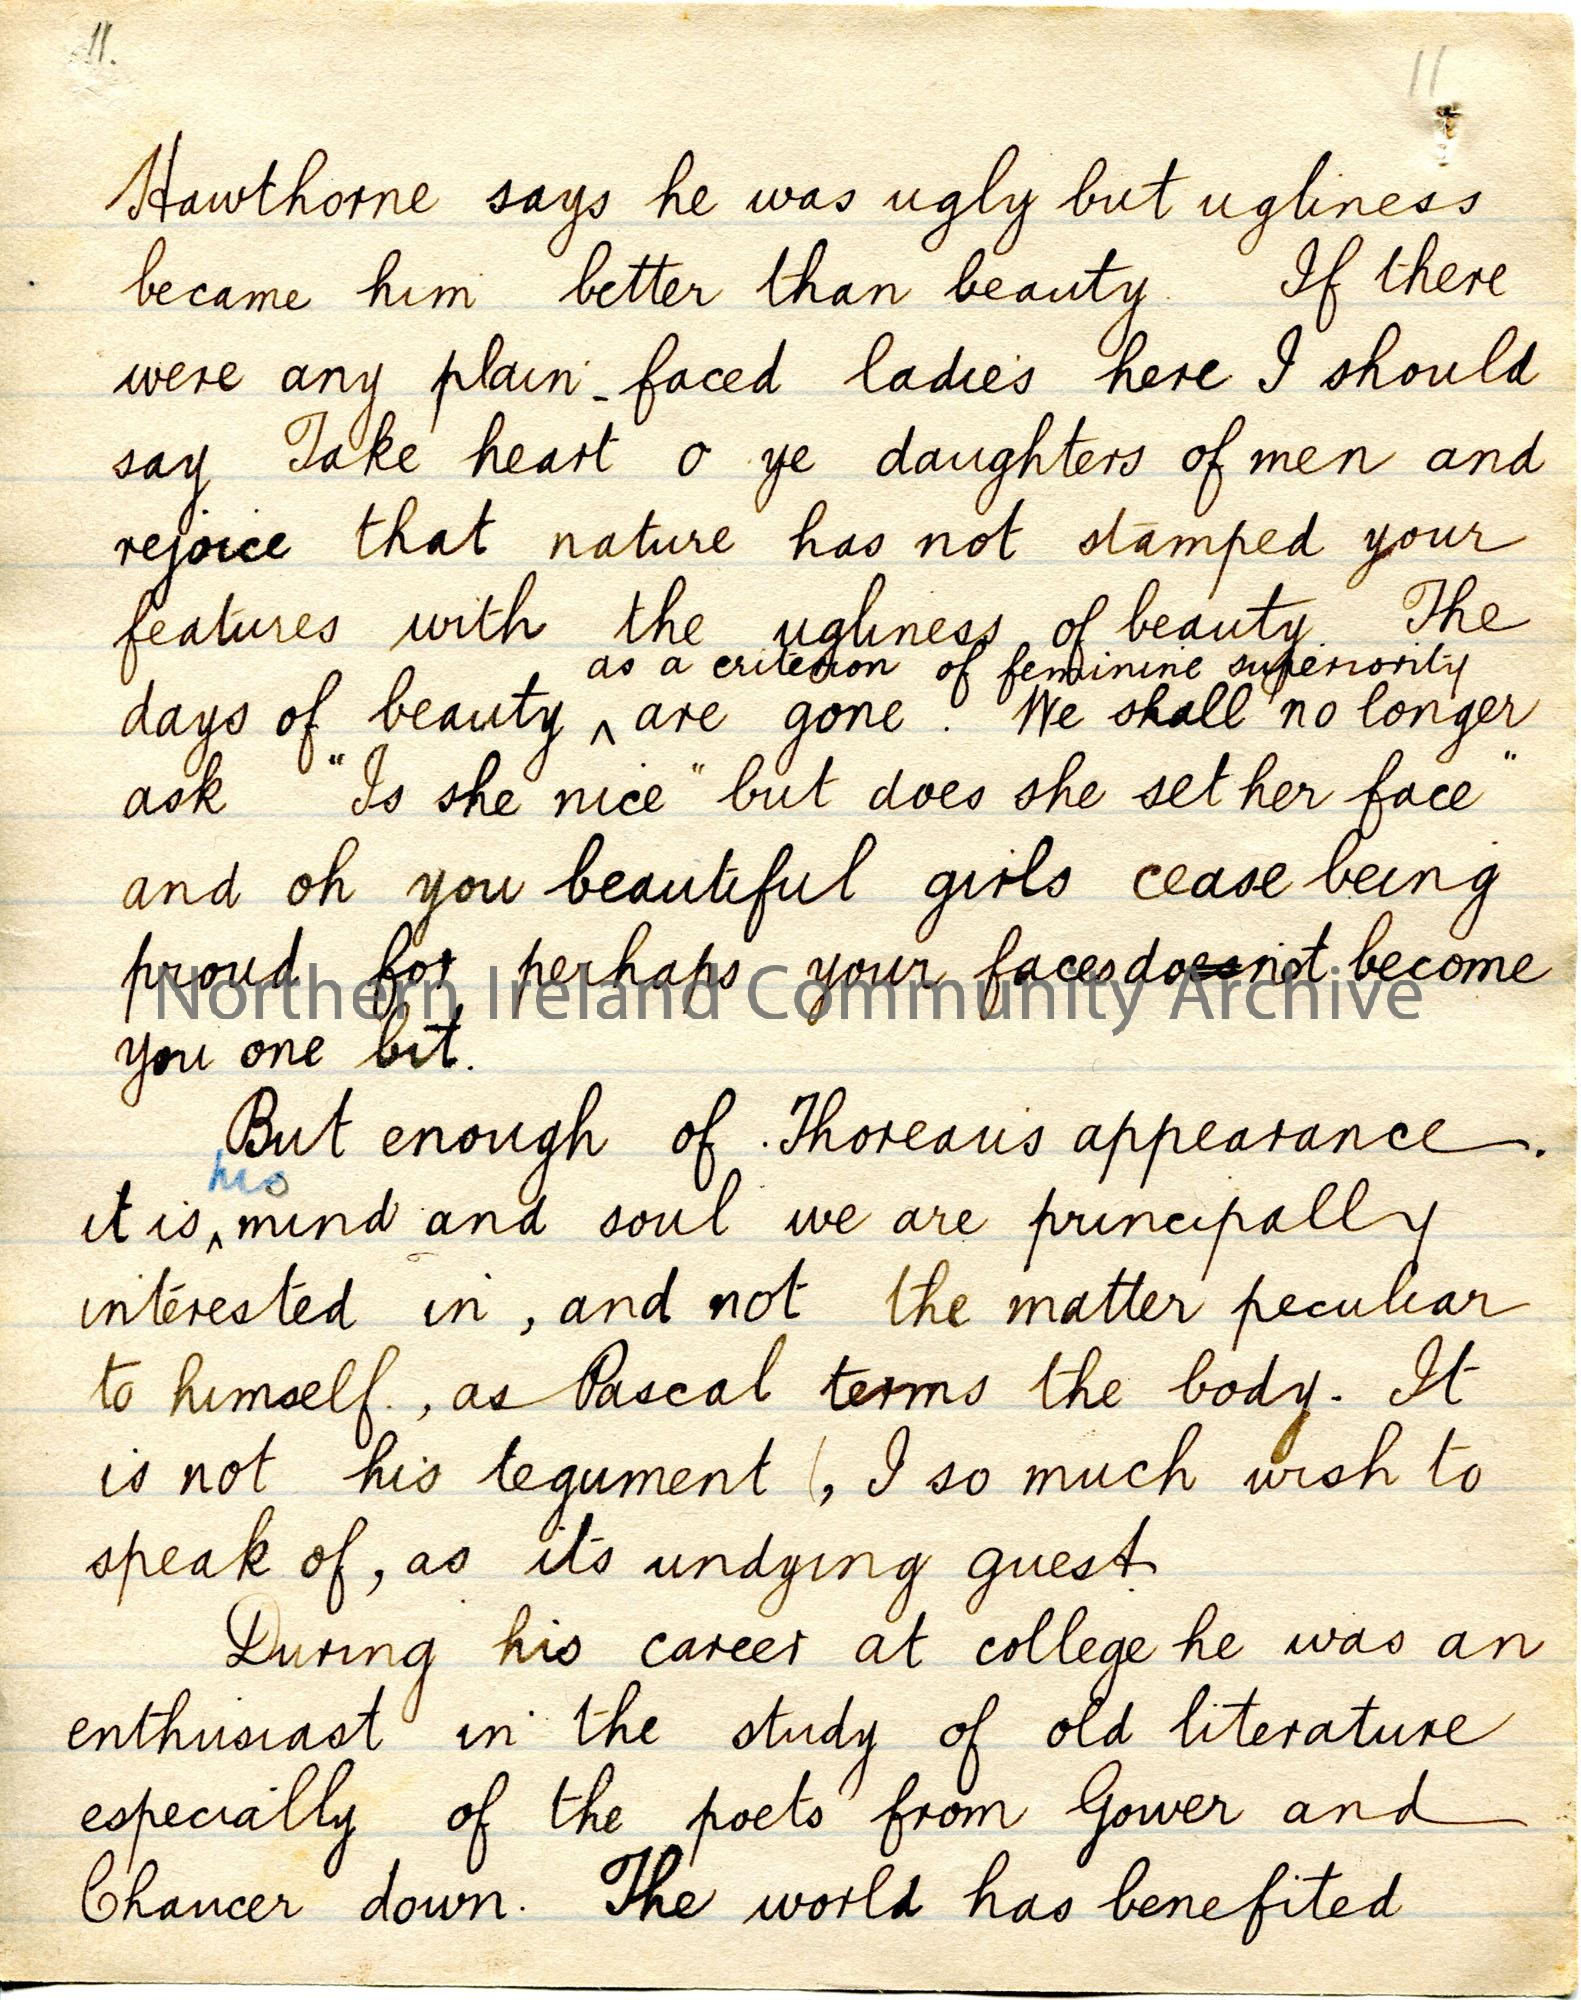 11.
11
Hawthorne says he was ugly but ugliness
became him better than beauty. If there
were any plain-faced ladies here I should
say Take heart o ye daughters of men and
rejoice that nature has not stamped your
features with the ugliness of beauty. The
as a criterion of feminine superiority
days of beauty ^ are gone. We shall no longer
ask "Is she nice" but does she set her face"
and oh you beautiful girls cease being
proud for perhaps your faces does not become
Northern Ireland Community Archive
you one bit.
But enough of Thoreau's appearance.
his
it is ^ mind and soul we are principally
interested in, and not the matter peculiar
to himself., as Pascal terms the body. It
is not his tegument (, I so much wish to
speak of, as its undying guest.
During his career at college he was an
enthusiast in the study of old literature
especially of the poets from Gower and
Chaucer down. The world has benefited